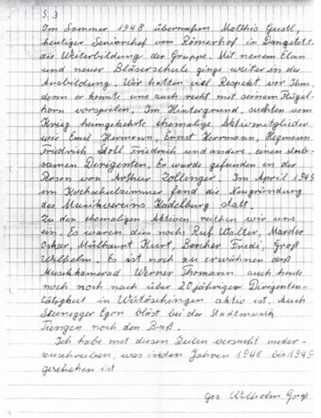 S. 3
Im Sommer 1948 übernahm Matthis Gustl,
heutiger Seniorchef vom Römerhof in Dangstett.
die Weiterbildung der Gruppe. Mit neuem Elan
und neuer Bläserschule ginge weiter in der
Ausbildung. Wir hatten viel Respekt vor Ihm,
denn er konnte uns auch recht mit seinem Flügel-
horn vorspielen. Im Hintergrund suchten vom
Krieg heimgekehrte ehemalige Aktivmitglieder
wie Emil Hermann, Ernst Herrmann,
Friedrich Stoll Friedrich und andere, einen
samen Dirigenten. Er wurde gefunden in der
Person von Arthur Zollinger. Im April 1949
im Kochschulzimmer fand die Neugründung
des Musikvereins Kadelburg statt.
Zu den ehemaligen Aktiven reihten wir uns
ein. Es waren dies noch: Ruf Walter, Marder
Oskar, Mülhaupt Kurt, Boecher Friedi, Groß
Wilhelm. Es ist noch zu erwähnen daß
Musikkamerad Werner Thomann auch heute
noch noch nach über 20 jähriger Dirigenten-
tätigkeit in Wutöschingen aktiv ist. Auch
Steinegger Egon bläst bei der Stadtmusik
Tiengen noch den Baß.
Ich habe mit diesen Zeilen versucht nieder-
zuschreiben, was in den Jahren 1946 bis 1949
geschehen ist
gez. Wilhelm Groß